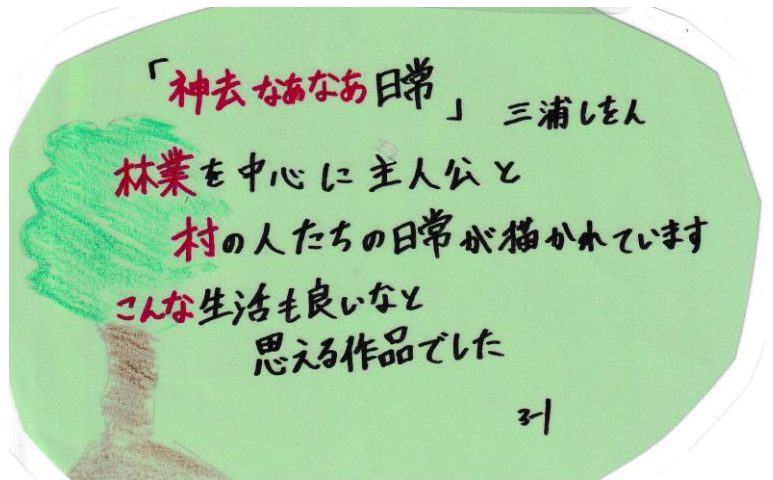 「神去なあなあ日常」 三浦しをん
林業を中心に主人公と
村の人たちの日常が描かれています
こんな生活も良いなと
思える作品でした
3-1